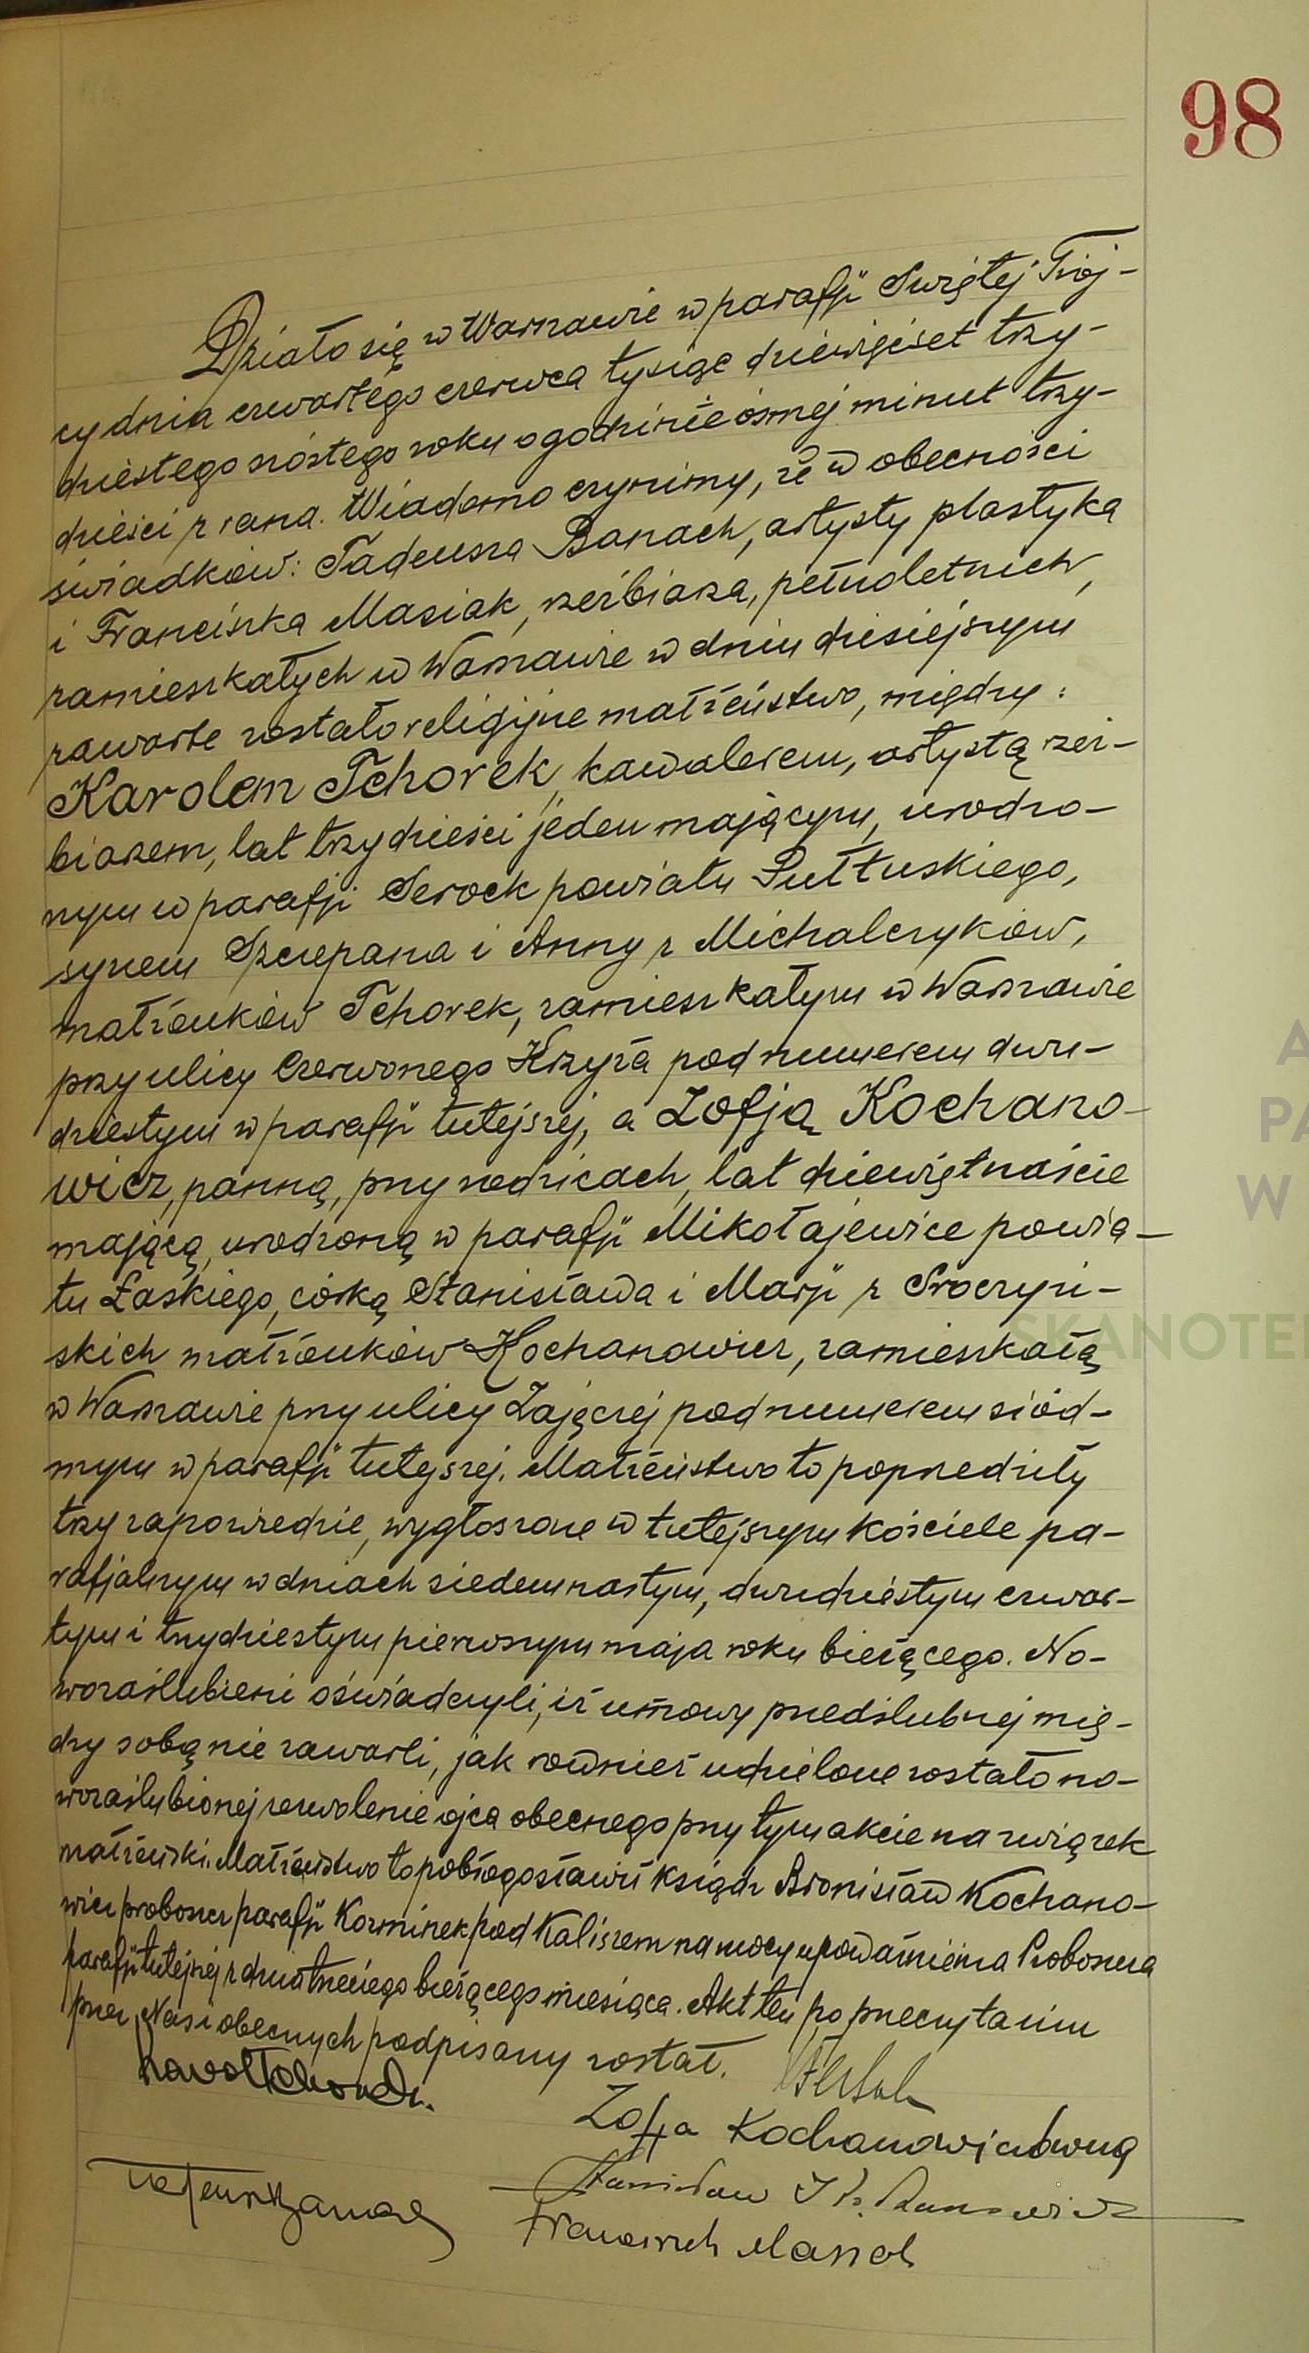 98
Działo się w Warszawie w parafji Świętej Trój-
cy dnia czwartego czerwca tysiąc dziewięćset trzy-
dziestego szóstego roku o godzinie ósmej minut trzy-
dzieści z rana. Wiadomo czynimy, że w obecności
świadków: Tadeusza Banach, artysty plastyka
i Franciszka Masiak, rzeźbiarza, pełnoletnich,
zamieszkałych w Warszawie w dniu dzisiejszym
zawarte zostało religijne małżeństwo, między:
Karolem Tchorek, kawalerem, artystą rzeź-
biarzem, lat trzydzieści jeden mającym, urodzo-
nym w parafji Serock powiatu Pułtuskiego,
synem Szczepana i Anny z Michalczyków,
małżonków Tchorek, zamieszkałym w Warszawie
przy ulicy Czerwonego Krzyża pod numerem dwu-
dziestym w parafji tutejszej, a Zofją Kochano-
wicz, panną, przy rodzicach, lat dziewiętnaście
mającą, urodzoną w parafji Mikołajewice powia-
tu Łaskiego, córką Stanisława i Marji z Sroczyń-
skich małżonków Kochanowicz, zamieszkałą
w Warszawie przy ulicy Zajęczej pod numerem siód-
mym w parafji tutejszej. Małżeństwo to poprzedziły
trzy zapowiedzie, wygłoszone w tutejszym kościele pa-
rafjalnym w dniach siedemnastym, dwudziestym czwar-
tym i trzydziestym pierwszym maja roku bieżącego. No-
wozaślubieni oświadczyli, iż umowy przedślubnej mię-
dzy sobą nie zawarli, jak również udzielone zostało no-
wozaślubionej zezwolenie ojca obecnego przy tym akcie na związek
małżeński. Małżeństwo to pobłogosławił ksiądz Bronisław Kochano-
wicz proboszcz parafji Koźminek pod Kaliszem na mocy upoważnienia Proboszcza
parafji tutejszej z dnia trzeciego bieżącego miesiąca. Akt ten po przeczytaniu
przez Nas i obecnych podpisany został.
Karol Tchorek.
Zofja Kochanowiczówna
Tadeusz Banach
Stanisław Kochanowicz
Franciszek Masiak
A
PA
W
SKANOTE